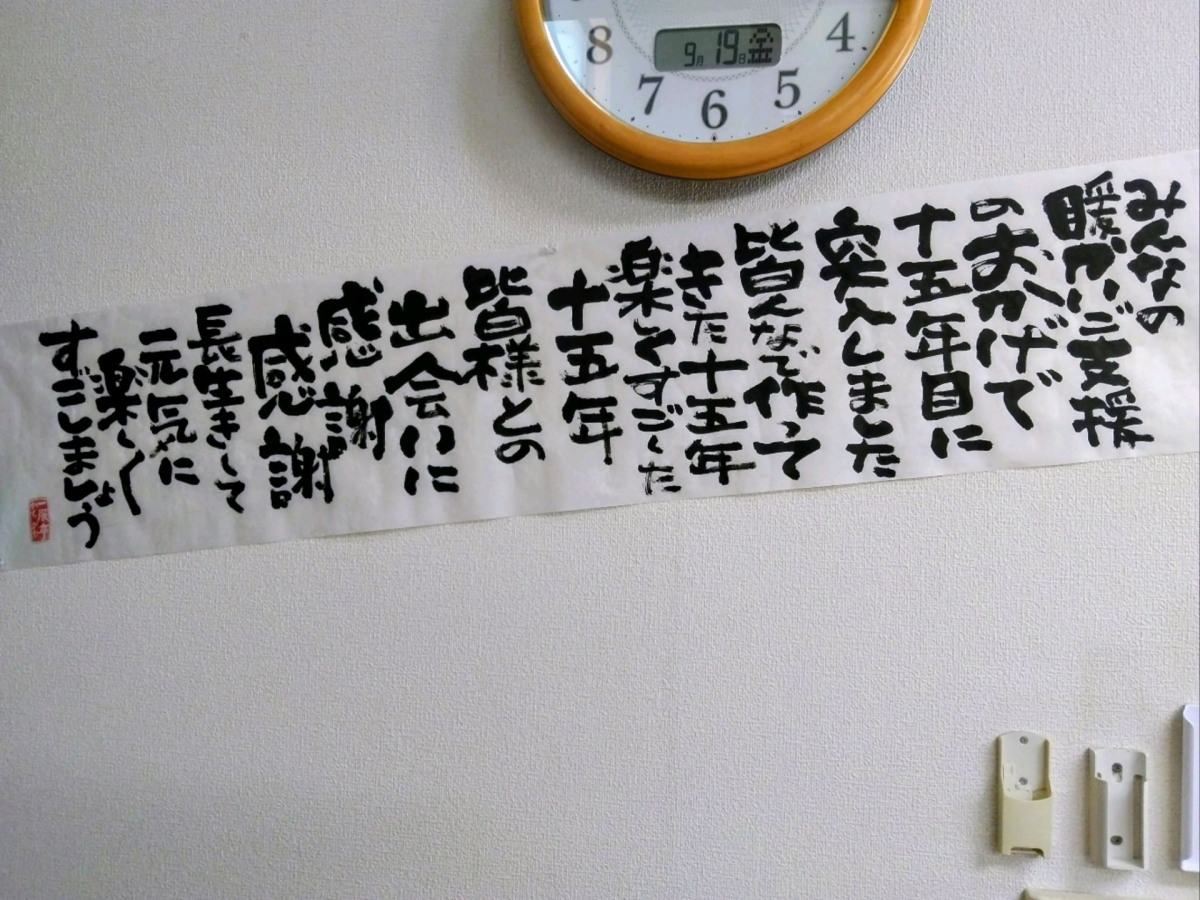 8
7
6
5
4
9月19日金
みんなの
暖かいご支援
のおかげで
十五年目に
突入しました
皆んなで作って
きた十五年
楽しくすごした
十五年
皆様との
出会いに
感謝
感謝
長生きして
元気に
楽しく
すごしましょう